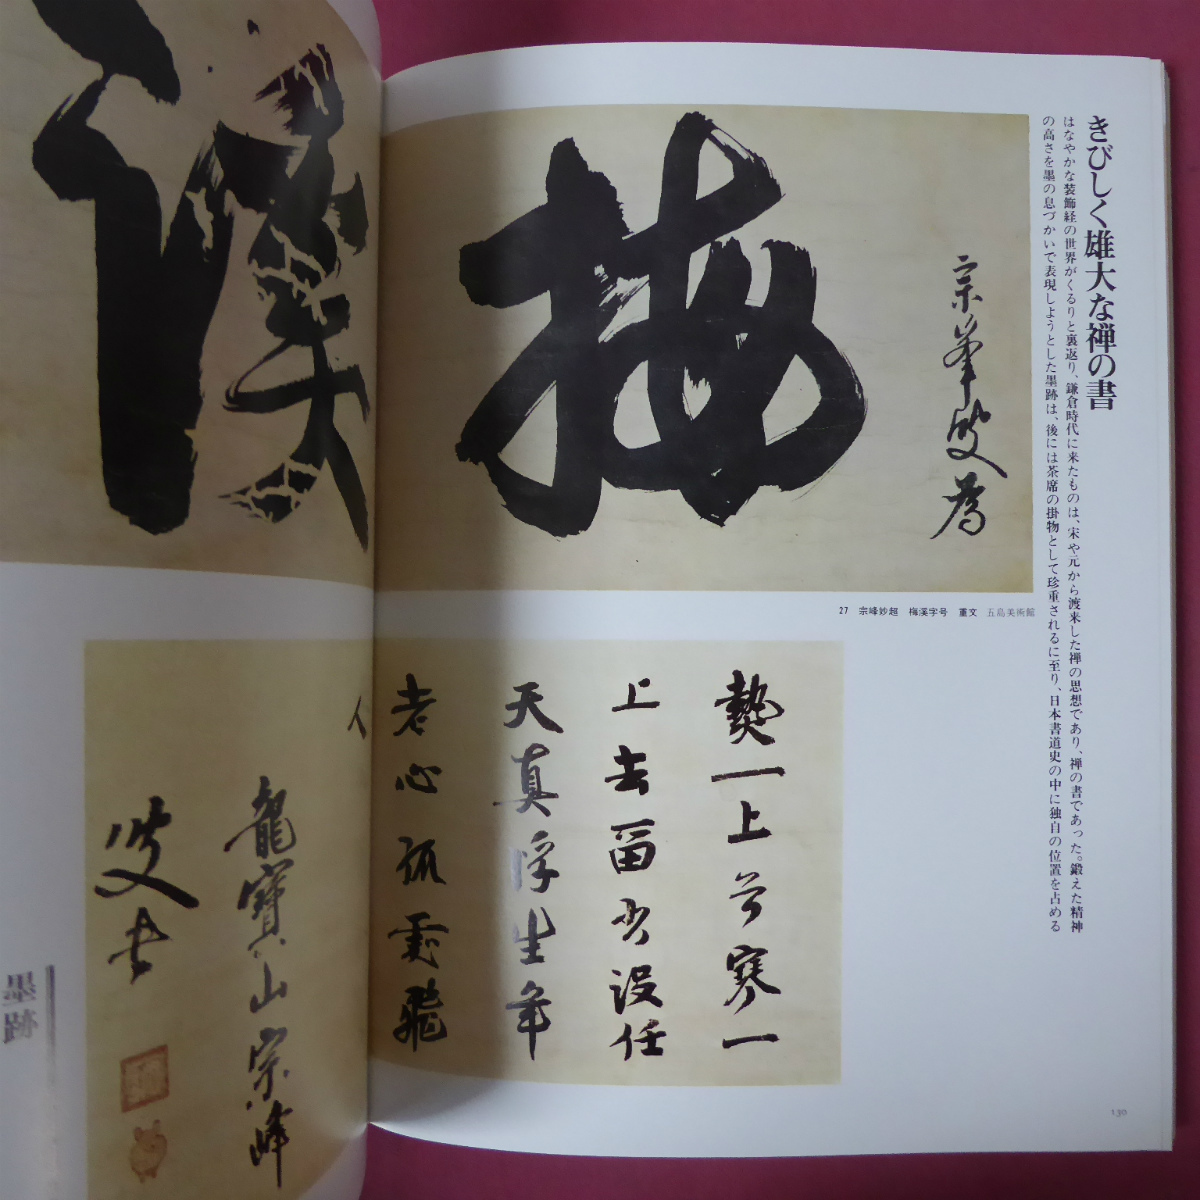 きびしく雄大な禅の書
はなやかな装飾経の世界がくるりと裏返り、鎌倉時代に来たものは、宋や元から渡来した禅の思想であり、禅の書であった。鍛えた精神
の高さを墨の息づかいで表現しようとした墨跡は、後には茶席の掛物として珍重されるに至り、日本書道史の中に独自の位置を占める
宗峯叟為
梅
溪
27 宗峰妙超 梅溪字号 重文 五島美術館
熱一上兮寒一
上去留少没任
天真浮生年
老心孤雲飛
人
龍寶山宗峰
叟書
墨跡
130